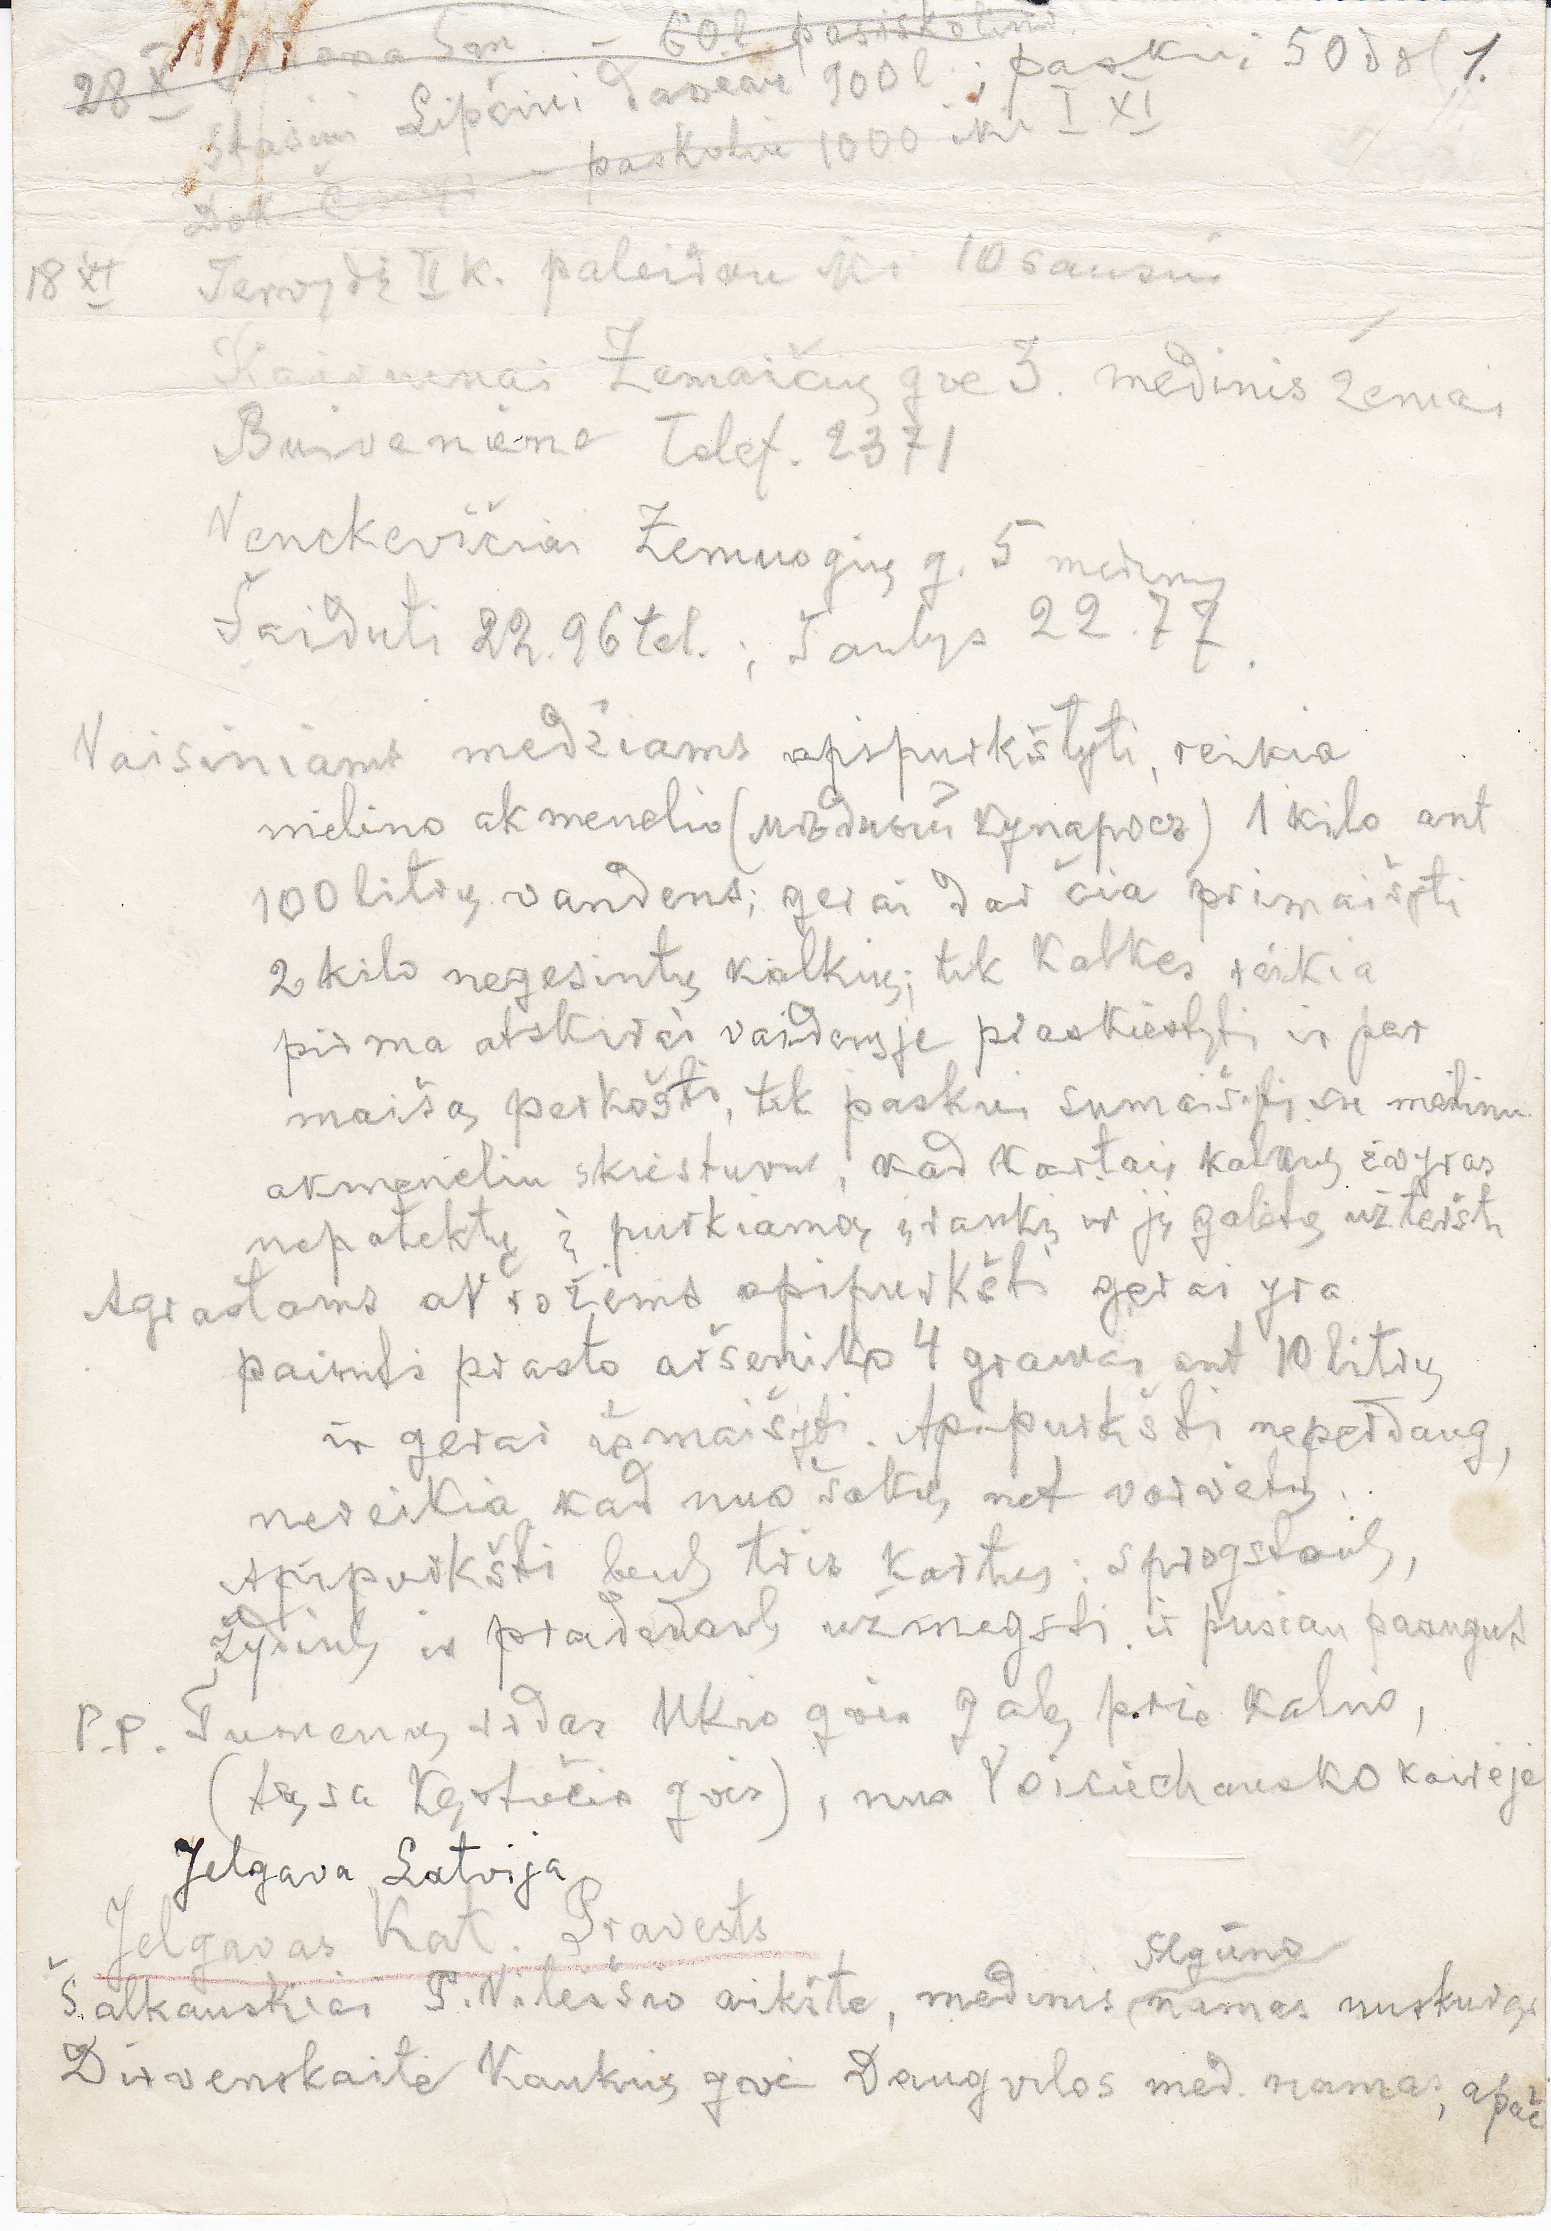 28 X 60 l. pasiskolino
Stasiui Lipčiui daviau 900 l.; paskui 50 dol 1.
Dok paskolino 1000 iki I XI
18 XI II k. paleidau iki 10 sausio
Žemaičių gve 3. medinis žemai
Buivenienė Telef. 2371
Venckevičiai Žemuogių g. 5 medinis
Šaiduti 22.96 tel.; Šaulys 22.77.
Vaisiniams medžiams apipurkštyti, reikia
mielino akmenelio (мѣдный купаросъ) 1 kilo ant
100 litrų vandens; gerai dar čia primaišyti
2 kilo negesintų kalkių; tik kalkes reikia
pirma atskirai vandenyje praskiestyti ir per
maišą perkošti, tik paskui sumaišyti su mielinu
akmeneliu skiestuvu, kad kartais kalkių žvyras
nepatektų į purkiamą įrankį ir jį galėtų užteršti
Agrastams ar rožėms apipurkšti gerai yra
paimti prasto aršeniko 4 gramai ant 10 litrų
ir gerai išmaišyti. Apipurkšti neperdaug,
nereikia kad nuo šakų net varvėtų.
Apipurkšti bent tris kartus: sprogstant,
žydint ir pradedant užmegsti ir pusiau paaugus
P.P. Tumenų sodas Ūkio gvės gale prie kalno,
(tąsa Kęstučio gvės), nuo Voiciechausko kairėje
Jelgava Latvija
Jelgavas Kat. Pravests
Algūno
Šalkauskiai P. Vileišio aikštė, medinis namas
Dirvenskaitė Kaukių gvė Daugvilos med. namas, apač